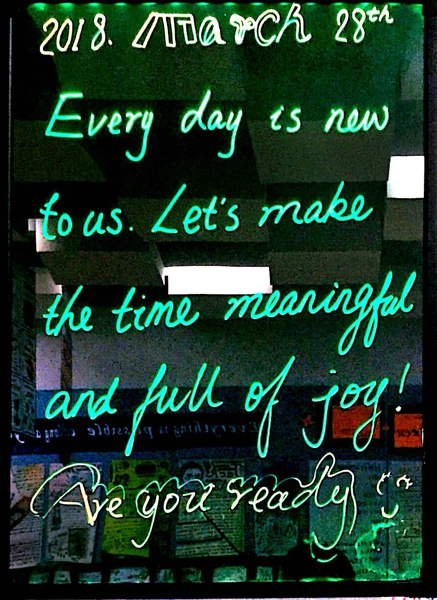 2018. March 28th
Every day is new
to us. Let's make
the time meaningful
and full of joy!
Everything is possible
Are you ready